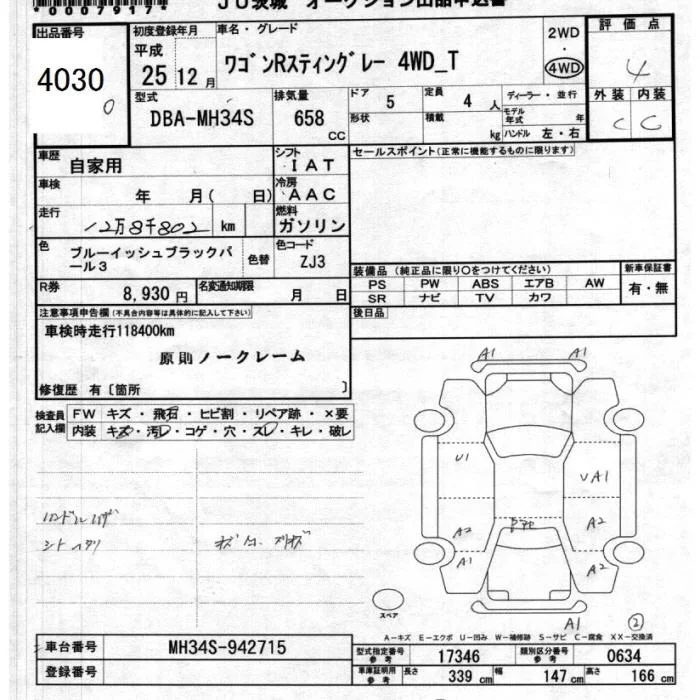 *00079179*
JU茨城 オークション出品申込書
出品番号 初度登録年月 車名・グレード 2WD ・ 4WD 評価点
4030 平成 25 12月 ワゴンRスティングレー 4WD_T 4
0
型式 DBA-MH34S 排気量 658 CC ドア 5 定員 4 人 ディーラー・並行 外装 内装
形状 積載 kg モデル年式 年 ハンドル 左・右 C C
車歴 自家用 シフト IAT セールスポイント(正常に機能するものに限ります)
車検 年 月( 日) 冷房 AAC
走行 12万8千802 km 燃料 ガソリン
色 ブルーイッシュブラックパール3 色替 色コード ZJ3
装備品(純正品に限り○をつけてください) 新車保証書
PS PW ABS エアB AW 有・無
SR ナビ TV カワ
R券 8,930円 名変通知期限 月 日
後日品
注意事項申告欄(不具合内容等は具体的に記入して下さい)
車検時走行118400km
原則ノークレーム
修復歴 有〔箇所 〕
検査員記入欄 FW キズ・飛石・ヒビ割・リペア跡・×要
内装 キズ・汚レ・コゲ・穴・スレ・キレ・破レ
A1 A1
U1
UA1
A2 A2
A1 A2
A1
スペア
②
A-キズ E-エクボ U-凹み W-補修跡 S-サビ C-腐食 XX-交換済
車台番号 MH34S-942715 型式指定番号 参考 17346 類別区分番号 参考 0634
登録番号 車庫証明用 参考 長さ 339 cm 幅 147 cm 高さ 166 cm